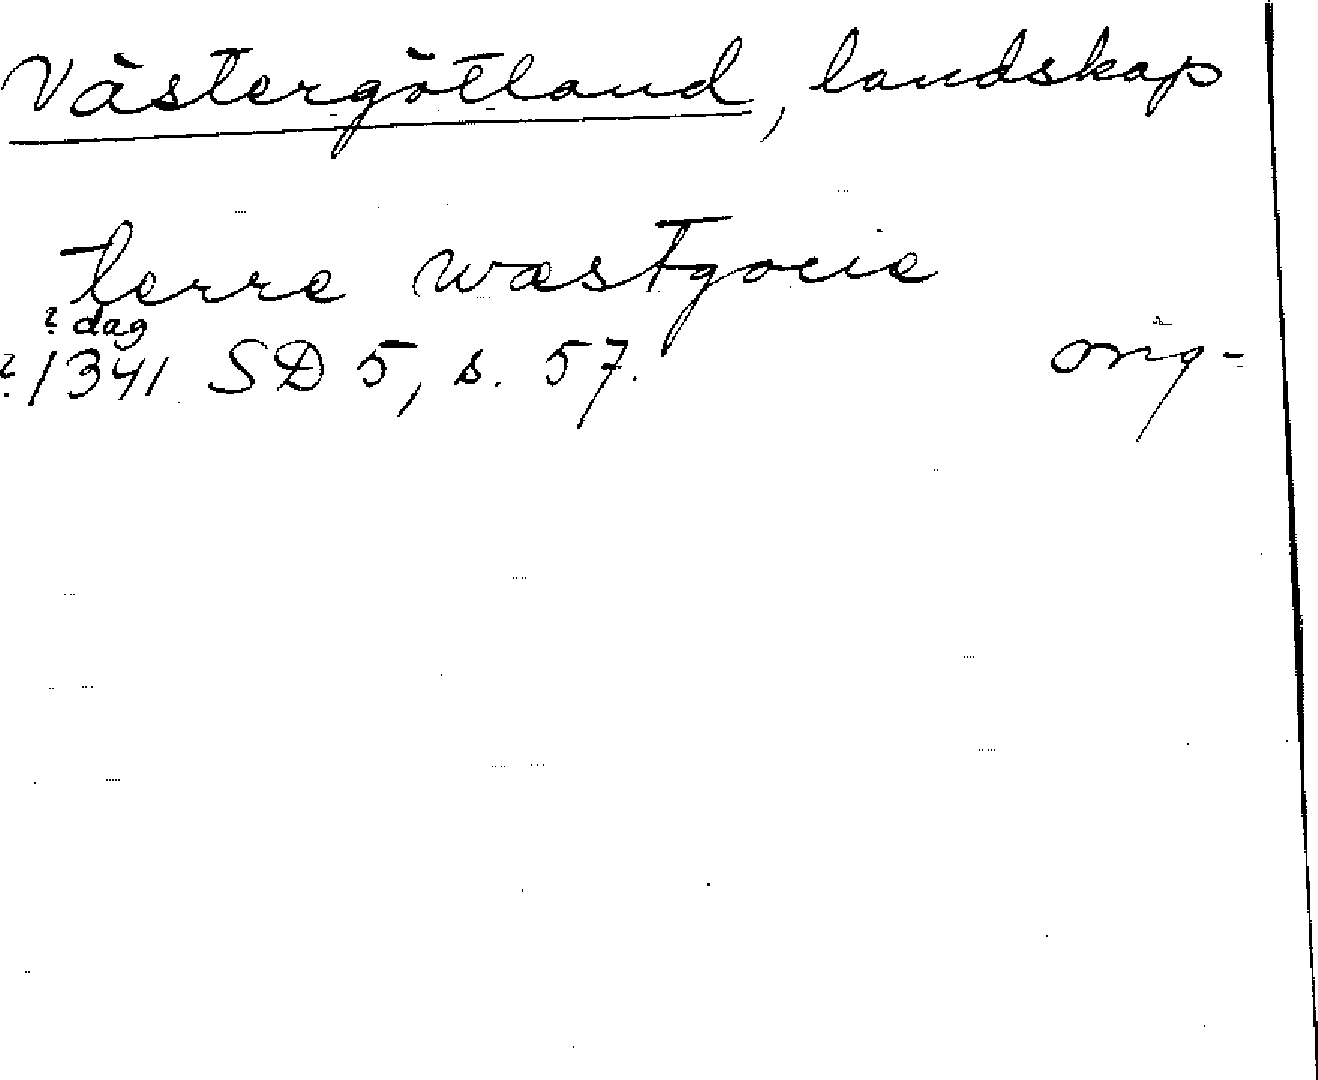 Västergötland, landskap
terre wæstgocie
? dag
? 1341 SD 5, s. 57. orig.